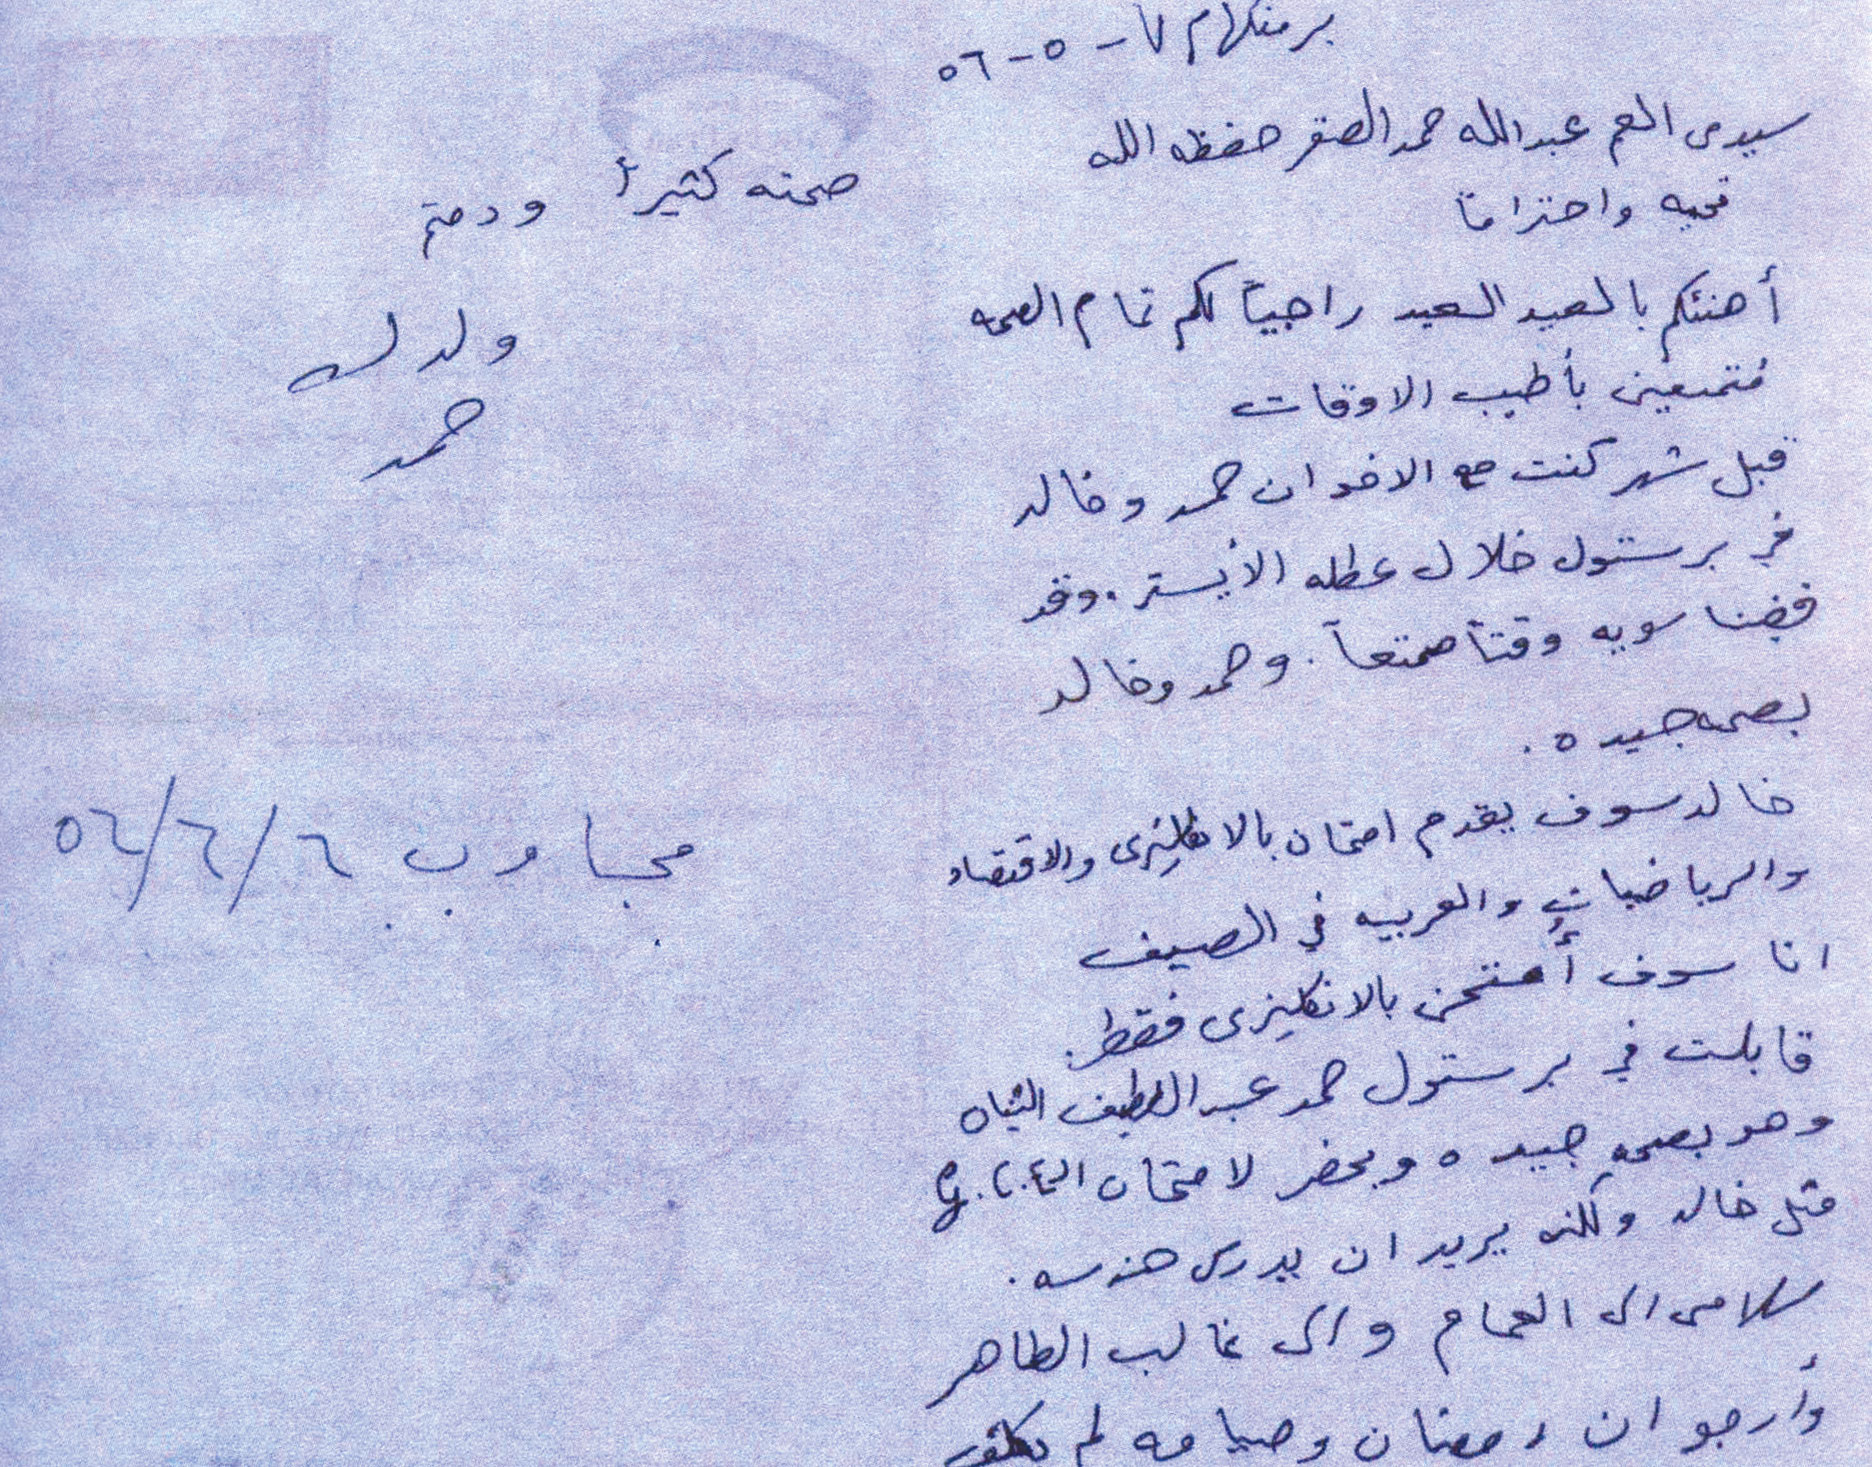 برمنكهام ٧-٥-٥٦
سيدى العم عبدالله حمد الصقر حفظه الله
تحيه واحتراماً
أهنئكم بالعيد السعيد راجياً لكم تمام الصحه
متمتعين بأطيب الاوقات
قبل شهر كنت مع الاخوان حمد وخالد
في برستول خلال عطله الايستر. وقد
قضينا سويه وقتاً ممتعاً. وحمد وخالد
بصحه جيده.
خالد سوف يقدم امتحان بالانكليزى والاقتصاد
والرياضيات والعربيه في الصيف
انا سوف أمتحن بالانكليزى فقط.
قابلت في برستول حمد عبد اللطيف الثنيان
وهو بصحه جيده ويحضر لامتحان الـ G.C.E
مثل خالد ولكنه يريد ان يدرس هندسه.
سلامى الى العمام والى غالب الطاهر
وأرجو ان رمضان وصيامه لم
صحته كثيراً ودمتم
ولدك
حمد
مجاوب ٦/٦/٥٦